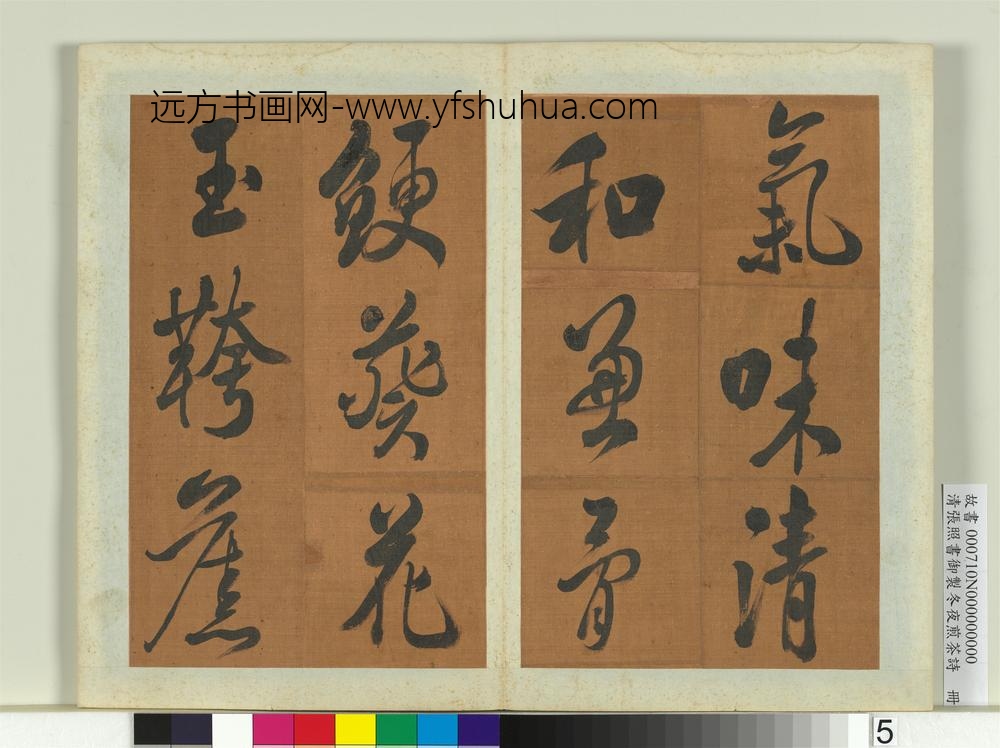 远方书画网-www.yfshuhua.com
氣味清
和兼骨
鯁葵花
玉舊
故書 000710N000000000
清張照書御製冬夜煎茶詩 冊
5